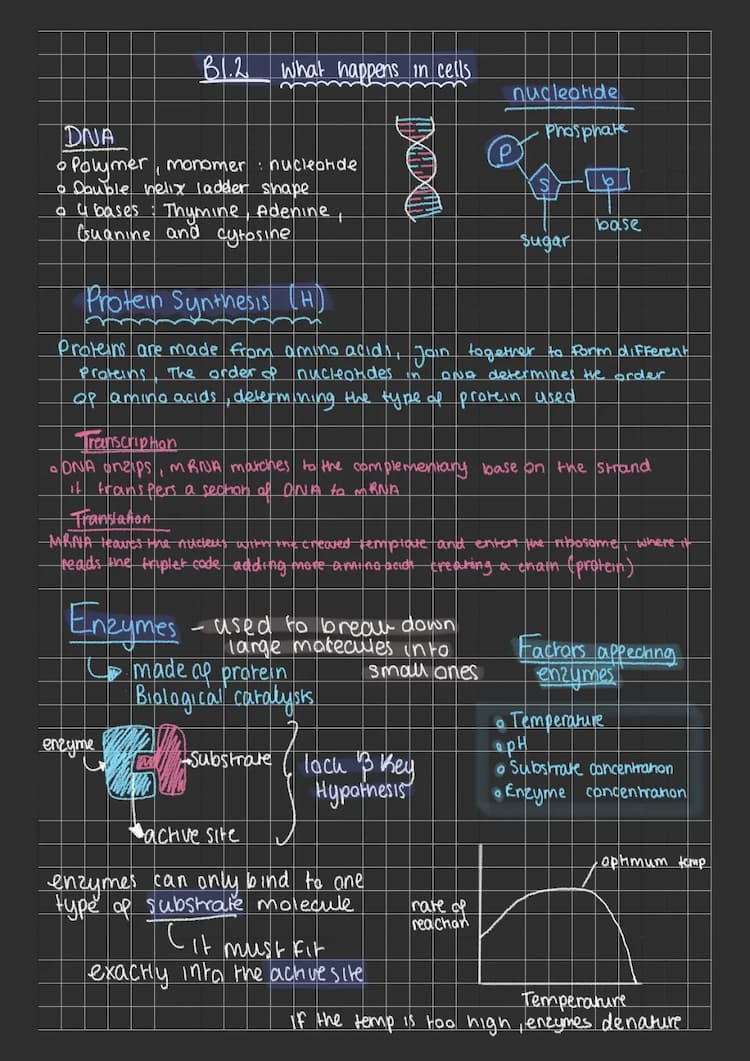 B1.2 What happens in cells
nucleotide
Phosphate
P
S
b
base
sugar
DNA
Polymer, monomer : nucleotide
Double helix ladder shape
4 bases : Thymine, Adenine,
Guanine and cytosine
Protein Synthesis (H)
Proteins are made from amino acids, join together to form different
proteins, The order of nucleotides in DNA determines the order
of amino acids, determining the type of protein used
Transcription
DNA unzips, mRNA matches to the complementary base on the strand
it transfers a section of DNA to mRNA
Translation
MRNA leaves the nucleus with the created template and enters the ribosome, where it
reads the triplet code adding more amino acids creating a chain (protein)
Enzymes - used to break down
large molecules into
small ones
made of protein
Biological catalysts
Factors affecting
enzymes
Temperature
pH
Substrate concentration
Enzyme concentration
enzyme
substrate
active site
lock & Key
Hypothesis
enzymes can only bind to one
type of substrate molecule
it must fit
exactly into the active site
optimum temp
rate of
reaction
Temperature
If the temp is too high, enzymes denature